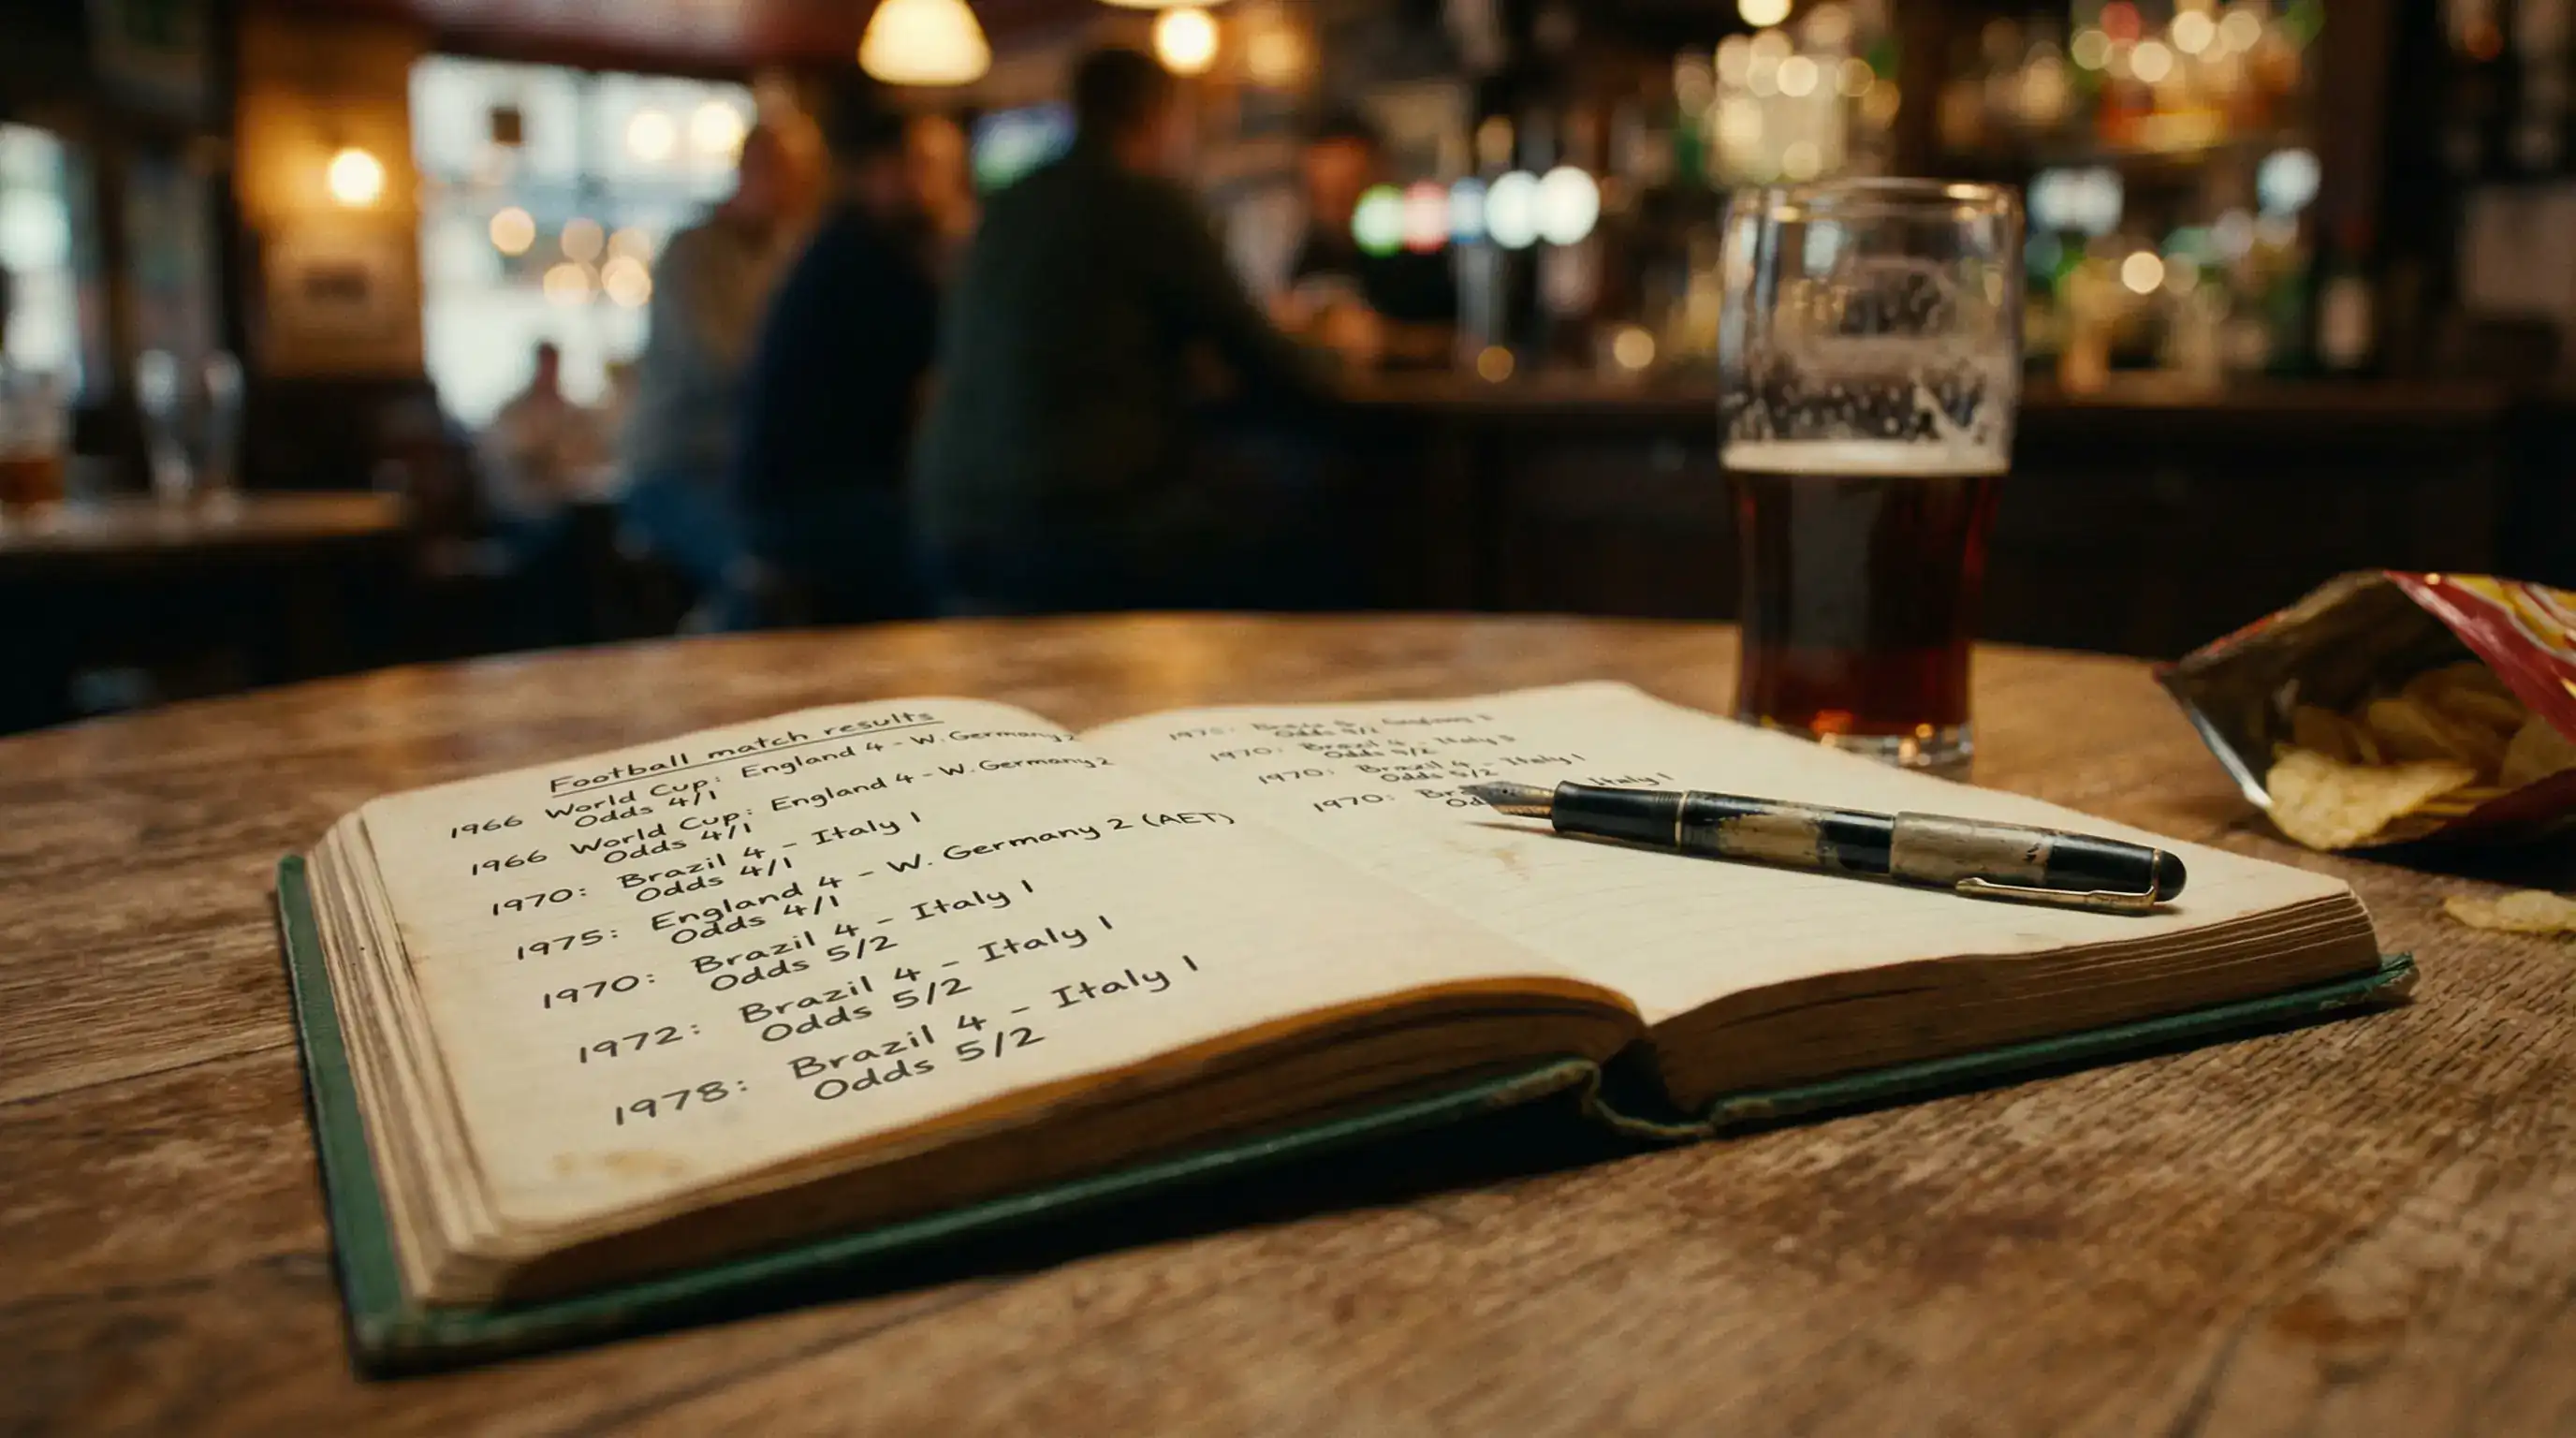 Football match results
1966 World Cup: England 4 - W. Germany 2
Odds 4/1
1966 World Cup: England 4 - W. Germany 2
Odds 4/1
1970: Brazil 4 - Italy 1
Odds 4/1
1975: England 4 - W. Germany 2 (AET)
Odds 4/1
1970: Brazil 4 - Italy 1
Odds 5/2
1972: Brazil 4 - Italy 1
Odds 5/2
1978: Brazil 4 - Italy 1
Odds 5/2
1970: Brazil 4 - Italy
Odds 9/2
1970: Brazil 4 - Italy 1
Odds 5/2
1970: Italy 1